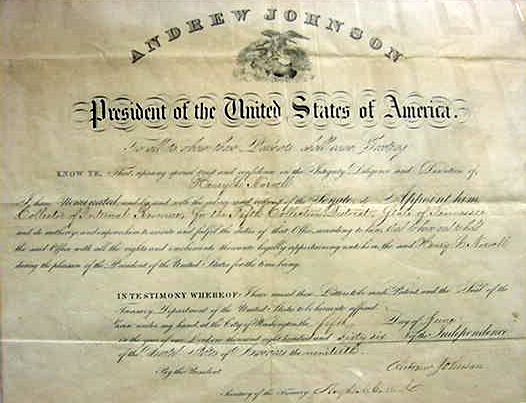 ANDREW JOHNSON
President of the United States of America.
To all to whom these Presents shall come Greeting
KNOW YE: That reposing special trust and confidence in the Integrity Diligence and Discretion of
Henry
I have Nominated and by and with the advice and consent of the Senate do Appoint him
Collector of Internal Revenue, for the Fifth Collection District, State of Tennessee
and do authorize and empower him to execute and fulfil the duties of that Office according to law; and to have and to hold
the said Office with all the rights and emoluments thereunto legally appertaining unto him the said Henry
during the pleasure of the President of the United States for the time being.
IN TESTIMONY WHEREOF: I have caused these Letters to be made Patent and the Seal of the
Treasury Department of the United States to be hereunto affixed
Given under my hand, at the City of Washington the fifth Day of June
in the year of our Lord one thousand eight hundred and sixty six of the Independence
of the United States of America the ninetieth
By the President Andrew Johnson
Secretary of the Treasury